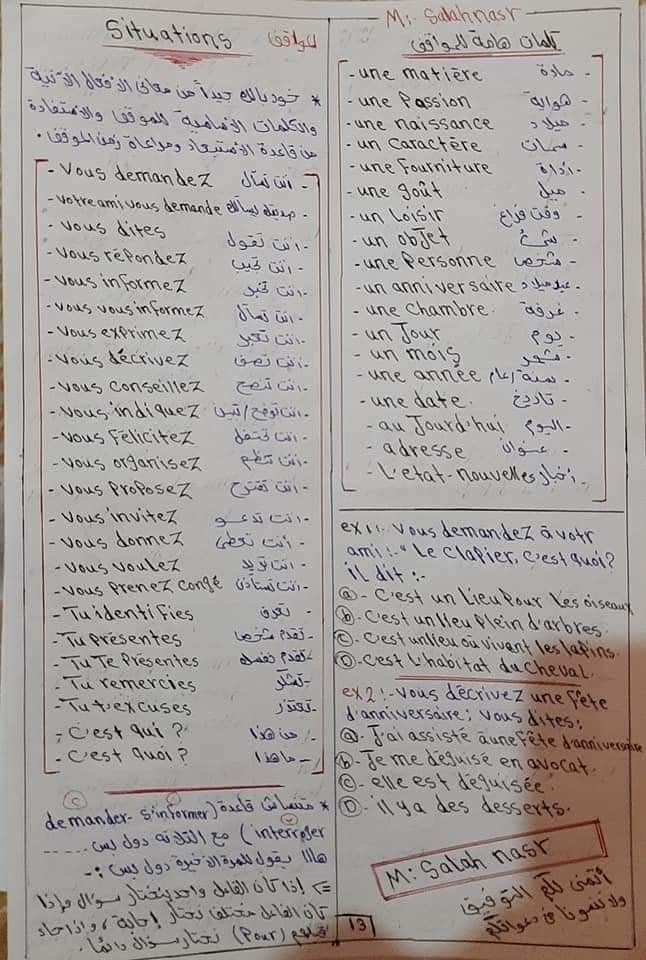 Situations المواقف
* خود بالك جيداً من معاني الأفعال الآتية
والكلمات الأساسية للموقف والاستفادة
من قاعدة الاستبعاد ومراعاة زمن الموقف.
- Vous demandez - أنت تسأل
- votre ami vous demande صديقك يسألك
- vous dites - أنت تقول
- vous répondez - أنت تجيب
- vous informez - أنت تخبر
- vous vous informez - أنت تسأل
- vous exprimez - أنت تعبر
- vous décrivez - أنت تصف
- vous conseillez - أنت تنصح
- vous indiquez - أنت توضح / تبين
- vous félicitez - أنت تحتفل
- vous organisez - أنت تنظم
- vous proposez - أنت تقترح
- vous invitez - أنت تدعو
- vous donnez - أنت تعطى
- vous voulez - أنت تريد
- vous prenez congé - أنت تستأذن
- Tu identifies - تعرف
- Tu présentes - تقدم شخصا
- Tu Te présentes - تقدم نفسك
- Tu remercies - تشكر
- Tu t'excuses - تعتذر
- C'est qui ? - من هذا
- C'est quoi ? - ما هذا
* متنساش قاعدة (demander - s'informer
interroger) مع التلاتة دول بس
هاا بقول للمرة الأخيرة دول بس :-
=> إذا كان الفاعل واحد يختار سؤال وإذا
كان الفاعل مختلف نختار إجابة، وإذا جاء
(Pour) نختار سؤال دائما.
13
M: Salah nasr
كلمات هامة للمواقف
- une matière - مادة
- une passion هواية
- une naissance ميلاد
- un caractère - سمات
- une fourniture - أداة
- une goût - ميل
- un loisir وقت فراغ
- un objet - شئ
- une personne - شخص
- un anniversaire - عيد ميلاد
- une chambre. غرفة
- un Jour - يوم
- un mois - شهر
- une année - سنة / عام
- une date. - تاريخ
- au Jourd'hui - اليوم
- adresse - عنوان
- L'etat-nouvelles - أخبار
ex 1:- vous demandez à votr
ami :- " Le clapier, c'est quoi?
il dit :-
ⓐ- C'est un Lieu pour les oiseaux
ⓑ- C'est un lieu plein d'arbres.
ⓒ- C'est un lieu où vivant les lapins.
Ⓓ- C'est L'habitat du cheval.
ex2:- vous décrivez une fête
d'anniversaire; vous dites:
ⓐ- J'ai assisté à une fête d'anniversaire
ⓑ- Je me déguise en avocat.
ⓒ- elle est déguisée.
Ⓓ- il y a des desserts.
M: Salah nasr
أتمنى لكم التوفيق
ولا تنسونا في دعواتكم